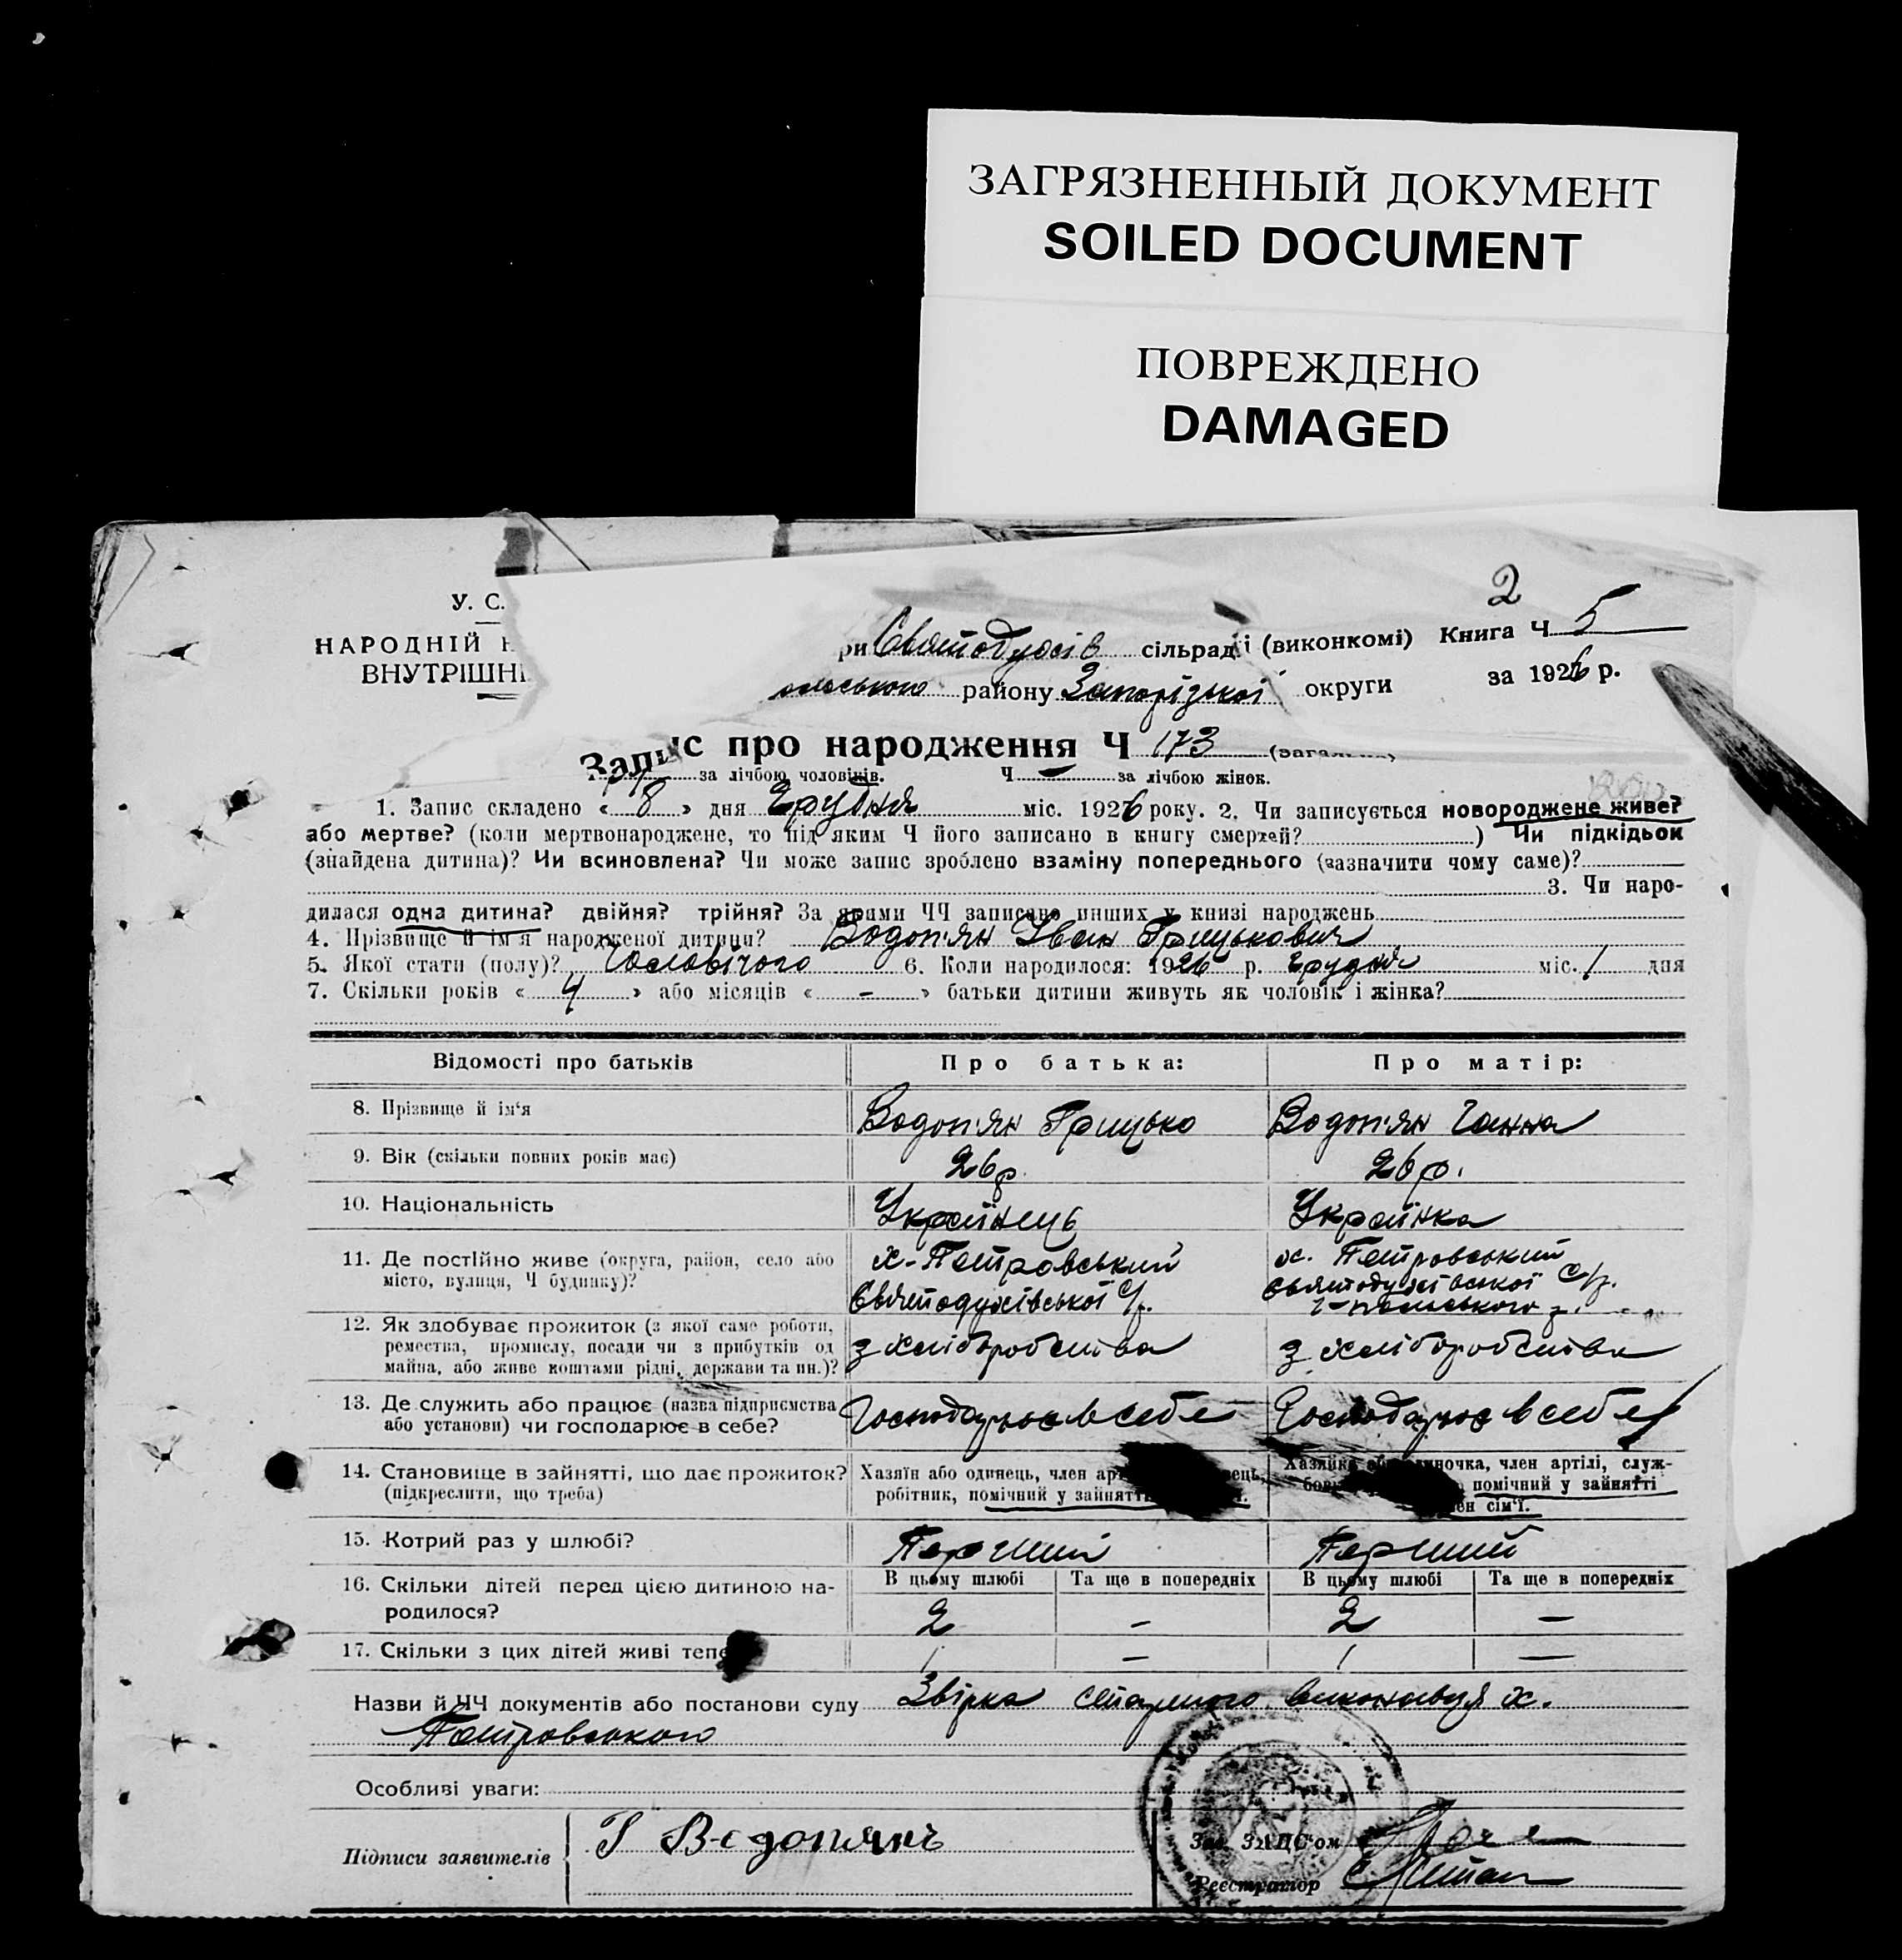 ЗАГРЯЗНЕННЫЙ ДОКУМЕНТ
SOILED DOCUMENT
ПОВРЕЖДЕНО
DAMAGED
2
У. С.
НАРОДНІЙ
ВНУТРІШНІ
ри Святодухів сільраді (виконкомі) Книга Ч 5
району Запорізької округи за 1926 р.
Запис про народження Ч 173
за лічбою чоловіків. Ч — за лічбою жінок.
1. Запис складено « 8 » дня Грудня міс. 1926 року. 2. Чи записується новороджене живе?
або мертве? (коли мертвонароджене, то під яким Ч його записано в книгу смертей? ) Чи підкідьок
(знайдена дитина)? Чи всиновлена? Чи може запис зроблено взаміну попереднього (зазначити чому саме)?
3. Чи наро-
дилася одна дитина? двійня? трійня? За якими ЧЧ записано инших у книзі народжень
4. Прізвище й ім'я народженої дитини? Водоп'ян Іван Грицькович
5. Якої стати (полу)? Чоловічого 6. Коли народилося: 1926 р. Грудня міс. 1 дня
7. Скільки років « 4 » або місяців « – » батьки дитини живуть як чоловік і жінка?
Відомості про батьків Про батька: Про матір:
8. Прізвище й ім'я Водоп'ян Грицько Водоп'ян Ганна
9. Вік (скільки повних років має) 26 р. 26 р.
10. Національність Українець Українка
11. Де постійно живе (округа, район, село або х. Петровський х. Петровський
місто, вулиця, Ч будинку)? Святодухівської С/р. Святодухівської С/р.
12. Як здобуває прожиток (з якої саме роботи,
ремества, промислу, посади чи з прибутків од з хліборобства з хліборобства
майна, або живе коштами рідні, держави та ин.)?
13. Де служить або працює (назва підприємства Господарює в себе Господарює в себе
або установи) чи господарює в себе?
14. Становище в зайнятті, що дає прожиток? Хазяїн або одинець, член Хазяйка член артілі, служ-
(підкреслити, що треба) робітник, помічний у зайнятті помічний у зайнятті
сім'ї.
15. Котрий раз у шлюбі? Перший Перший
16. Скільки дітей перед цією дитиною на- В цьому шлюбі Та ще в попередніх В цьому шлюбі Та ще в попередніх
родилося? 2 – 2 –
17. Скільки з цих дітей живі тепе 1 – 1 –
Назви й ЧЧ документів або постанови суду Звірка виконавця х.
Петровського
Особливі уваги:
Підписи заявителів Г Водопянъ Зав. ЗАЦС'ом
Реєстратор